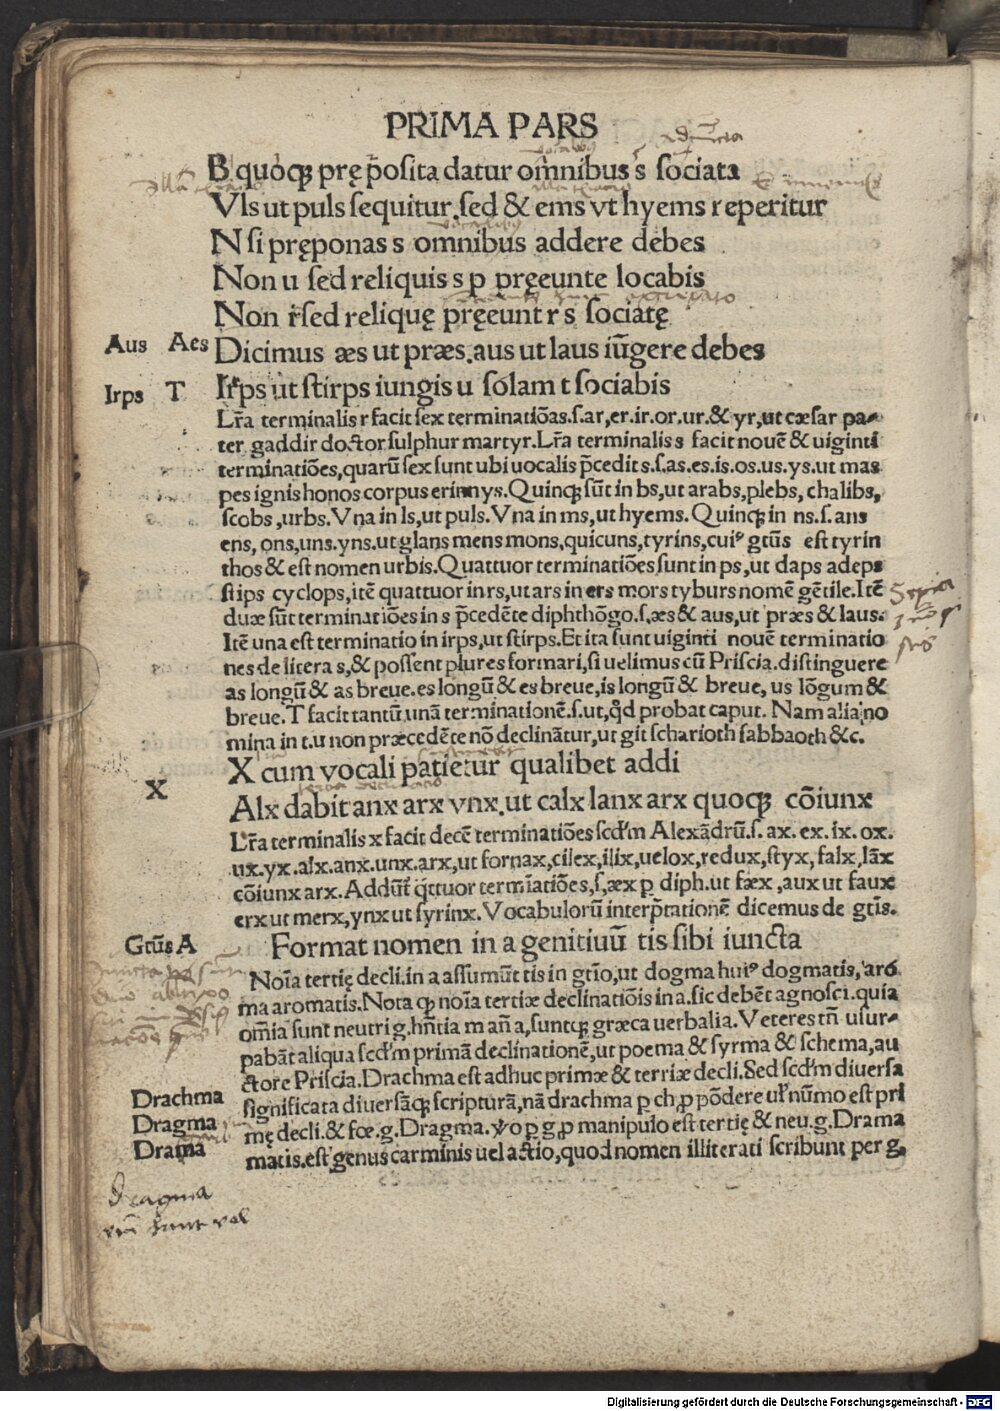 PRIMA PARS
B quoqꝫ prę p̃osita datur om̃nibus s sociata
Vls ut puls sequitur.sed & ems vt hyems reperitur
N si pręponas s omnibus addere debes
Non u sed reliquis s p pręeunte locabis
Non r̃sed reliquę pręeunt r s sociatę
Aus Aes Dicimus æs ut præs.aus ut laus iũgere debes
Irps T Irps ut stirps iungis u solam t sociabis
Lr̃a terminalis r facit sex terminatiõas.s.ar,er.ir.or.ur.& yr,ut cæsar pa-
ter gaddir doctor sulphur martyr.Lr̃a terminalis s facit nouẽ & uiginti
terminatiões,quarũ sex sunt ubi uocalis p̃cedit s.s.as.es.is.os.us.ys.ut mas
pes ignis honos corpus erinnys.Quinqꝫ sũt in bs,ut arabs,plebs, chalibs,
scobs ,urbs.Vna in ls,ut puls.Vna in ms,ut hyems.Quinqꝫ in ns.s.ans
ens, ons,uns.yns.ut glans mens mons,quicuns,tyrins,cuiꝰ gtũs est tyrin
thos & est nomen urbis.Quattuor terminatiões sunt in ps,ut daps adeps
stips cyclops,itẽ quattuor in rs,ut ars in ers mors tyburs nomẽ gẽtile.Itẽ
duæ sũt terminatiões in s p̃cedẽte diphthõgo.s.æs & aus,ut præs & laus.
Itẽ una est terminatio in irps,ut stirps.Et ita sunt uiginti nouẽ terminatio
nes de litera s,& possent plures formari,si uelimus cũ Priscia.distinguere
as longũ & as breue.es longũ & es breue,is longũ & breue, us lõgum &
breue.T facit tantũ unã terminationẽ.s.ut,q̃d probat caput. Nam alia no
mina in t.u non præcedẽte nõ declinãtur,ut git scharioth sabbaoth &c.
X cum vocali patietur qualibet addi
X
Alx dabit anx arx vnx.ut calx lanx arx quoqꝫ cõiunx
Lr̃a terminalis x facit decẽ terminatiões scd̃m Alexãdrũ.s. ax. ex. ix. ox.
ux.yx.alx.anx.unx.arx,ut fornax,cilex,ilix,uelox,redux,styx, falx,lãx
cõiunx arx.Addũt q̃ttuor termĩatiões,s,æx p diph.ut fæx ,aux ut faux
erx ut merx,ynx ut syrinx.Vocabulorũ interp̃tationẽ dicemus de gtĩs.
Gtũs A Format nomen in a genitiuũ tis sibi iuncta
Noĩa tertię decli.in a assumũt tis in gtĩo,ut dogma huiꝰ dogmatis, aro
ma aromatis.Nota qꝫ noĩa tertiæ declinatiõis in a.sic debẽt agnosci.quia
om̃ia sunt neutri g.hñtia m añ a,suntqꝫ græca uerbalia.Veteres tñ usur-
pabãt aliqua scd̃m primã declinationẽ,ut poema & syrma & schema,au
ctore Priscia.Drachma est adhuc primæ & tertiæ decli.Sed scd̃m diuersa
Drachma significata diuersãqꝫ scripturã,nã drachma p ch,p põdere ul̃ nũmo est pri
Dragma mę decli.& fœ.g.Dragma.ꝟo p g,p manipulo est tertię & neu.g.Drama
Drama matis.est genus carminis uel actio,quod nomen illiterati scribunt per g.
dragma
Digitalisierung gefördert durch die Deutsche Forschungsgemeinschaft - DFG